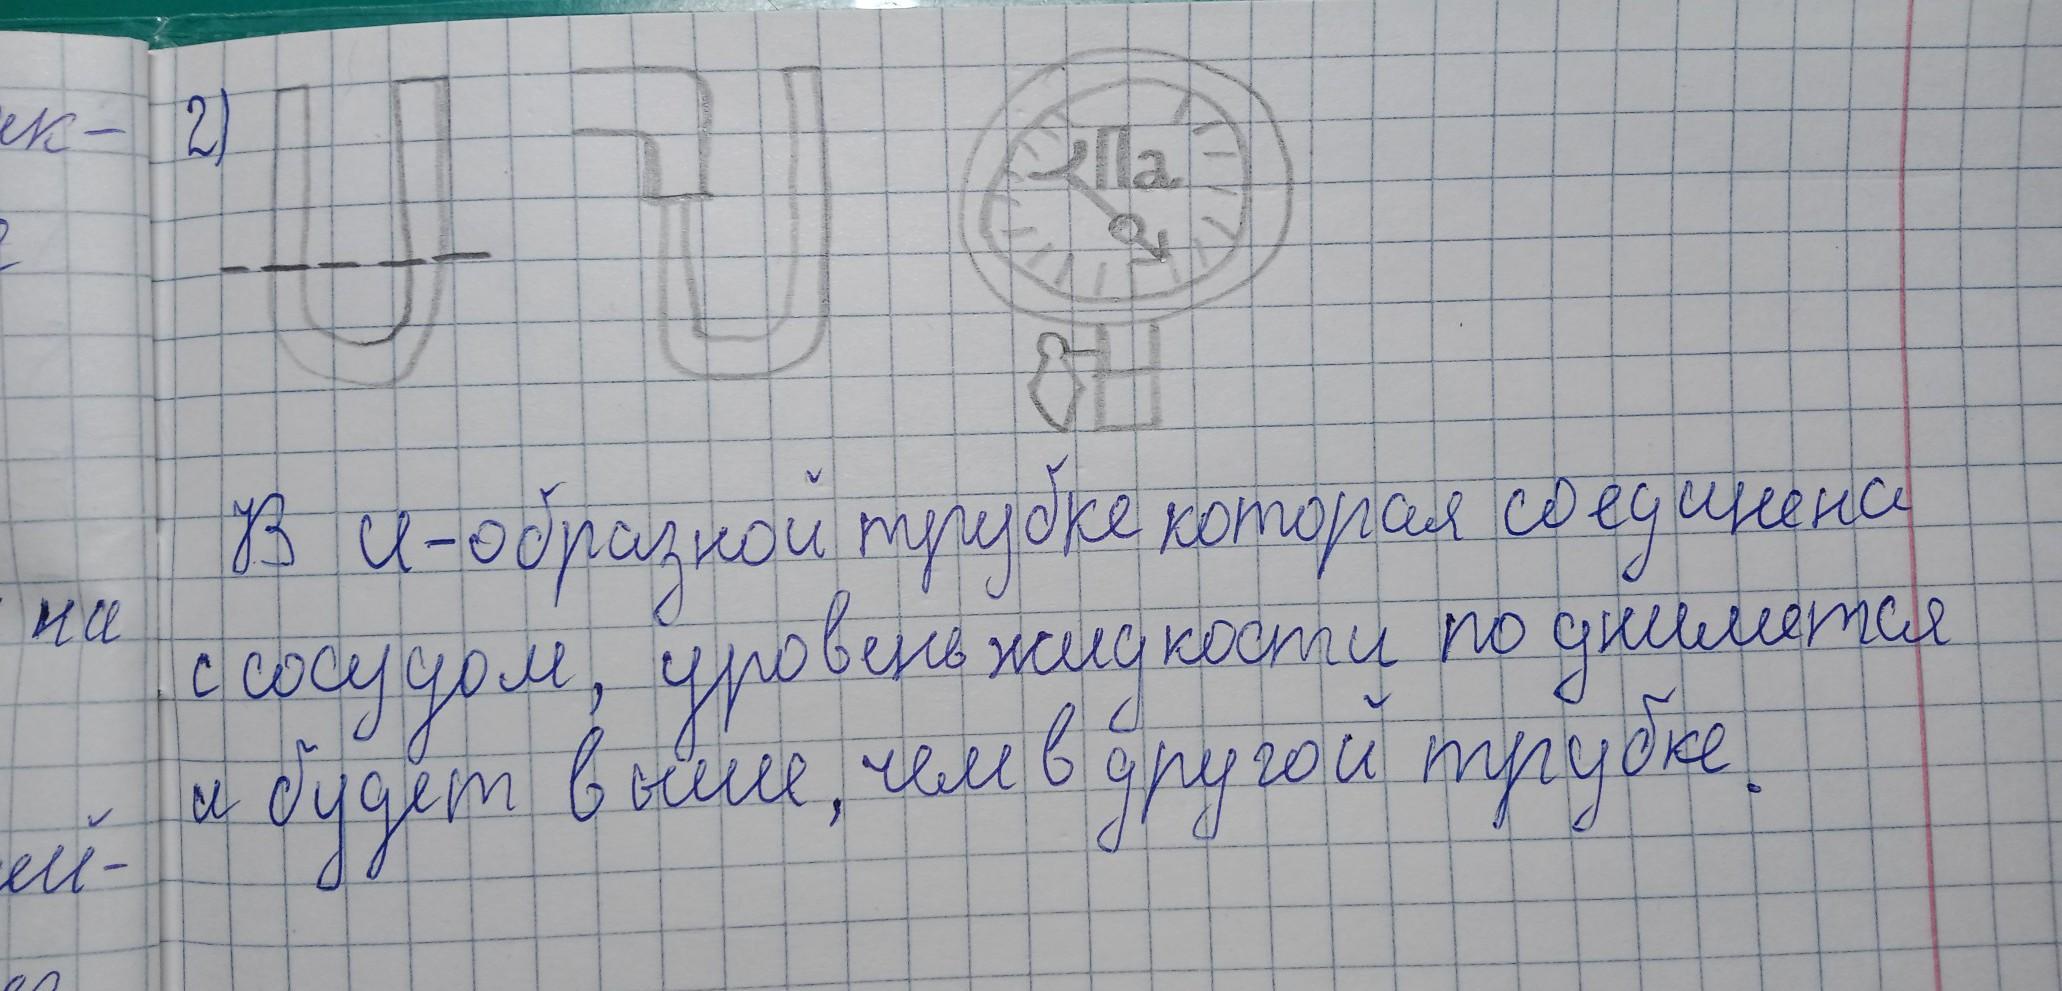 ик-
2)
Па
В U-образной трубке которая соединена
на
с сосудом, уровень жидкости поднимется
и будет выше, чем в другой трубке.
ей-